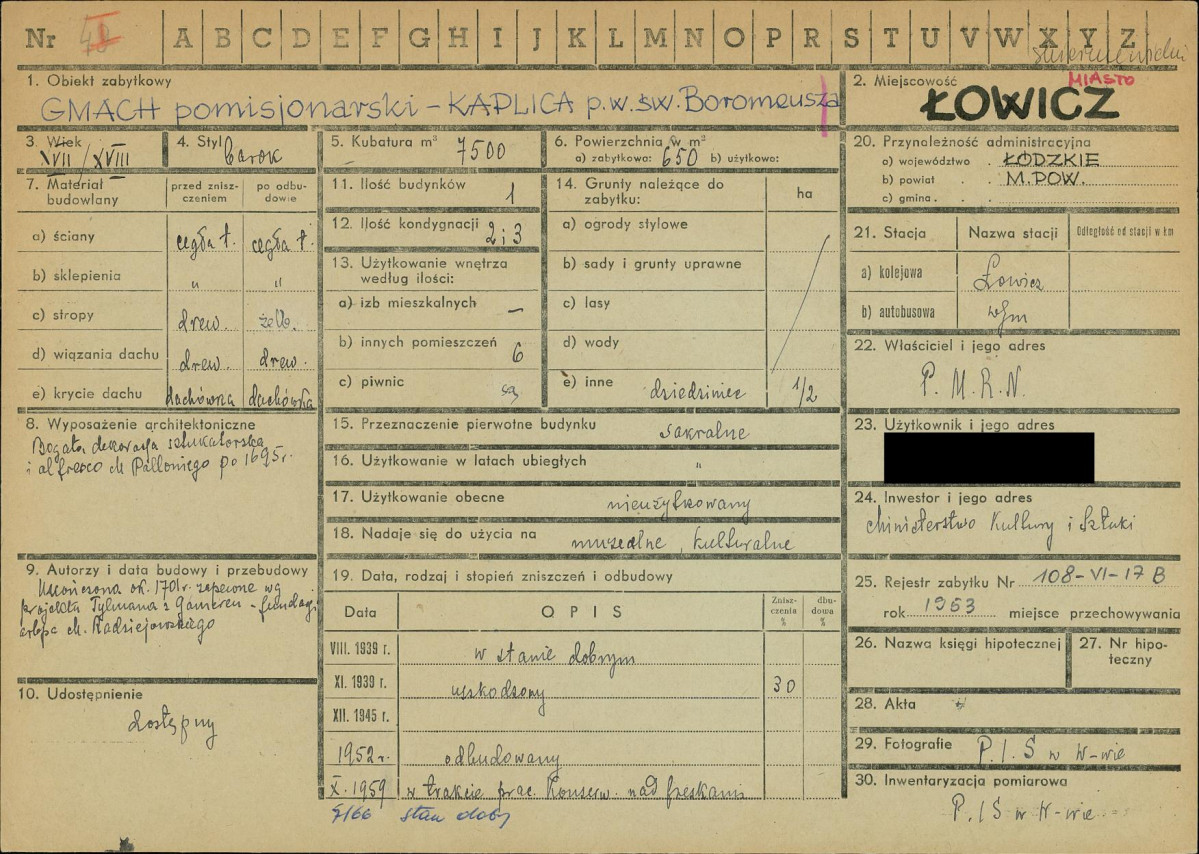 Nr A B C D E F G H I J K L M N O P R S T U V W X Y Z
1. Obiekt zabytkowy
GMACH pomisjonarski - KAPLICA p.w. św. Boromeusza
2. Miejscowość
MIASTO
ŁOWICZ
3. Wiek
XVII/XVIII
4. Styl barok
5. Kubatura m³ 7500
6. Powierzchnia w m²
a) zabytkowa: 650 b) użytkowa:
7. Materiał budowlany
przed zniszczeniem
po odbudowie
a) ściany cegła t. cegła t.
b) sklepienia " "
c) stropy drew. żelb.
d) wiązania dachu drew. drew.
e) krycie dachu dachówka dachówka
8. Wyposażenie architektoniczne
Bogata dekoracja sztukatorska
i al fresco M. Palloniego po 1695 r.
9. Autorzy i data budowy i przebudowy
Ukończona ok. 1701 r. zapewne wg
projektu Tylmana z Gameren - fundacji
arbpa M. Radziejowskiego
10. Udostępnienie
dostępny
11. Ilość budynków 1
12. Ilość kondygnacji 2 i 3
13. Użytkowanie wnętrza
według ilości:
a) izb mieszkalnych –
b) innych pomieszczeń 6
c) piwnic są
14. Grunty należące do
zabytku:
ha
a) ogrody stylowe
b) sady i grunty uprawne
c) lasy
d) wody
e) inne dziedziniec 1/2
15. Przeznaczenie pierwotne budynku sakralne
16. Użytkowanie w latach ubiegłych "
17. Użytkowanie obecne nieużytkowany
18. Nadaje się do użycia na muzealne, kulturalne
19. Data, rodzaj i stopień zniszczeń i odbudowy
Data
OPIS
Zniszczenia %
dbudowa %
VIII. 1939 r. w stanie dobrym
XI. 1939 r. uszkodzony 30
XII. 1945 r.
1952 r. odbudowany
X. 1959 w trakcie prac. Konserw. nad freskami
stan dobry
20. Przynależność administracyjna
a) województwo . ŁÓDZKIE
b) powiat . . M. POW.
c) gmina . . .
21. Stacja
Nazwa stacji
Odległość od stacji w km
a) kolejowa Łowicz
b) autobusowa
22. Właściciel i jego adres
P. M. R. N.
23. Użytkownik i jego adres
24. Inwestor i jego adres
Ministerstwo Kultury i Sztuki
25. Rejestr zabytku Nr 108-VI-17 B
rok 1953 miejsce przechowywania
26. Nazwa księgi hipotecznej
27. Nr hipoteczny
28. Akta
29. Fotografie P. I. S w W-wie
30. Inwentaryzacja pomiarowa
P. I S w W-wie